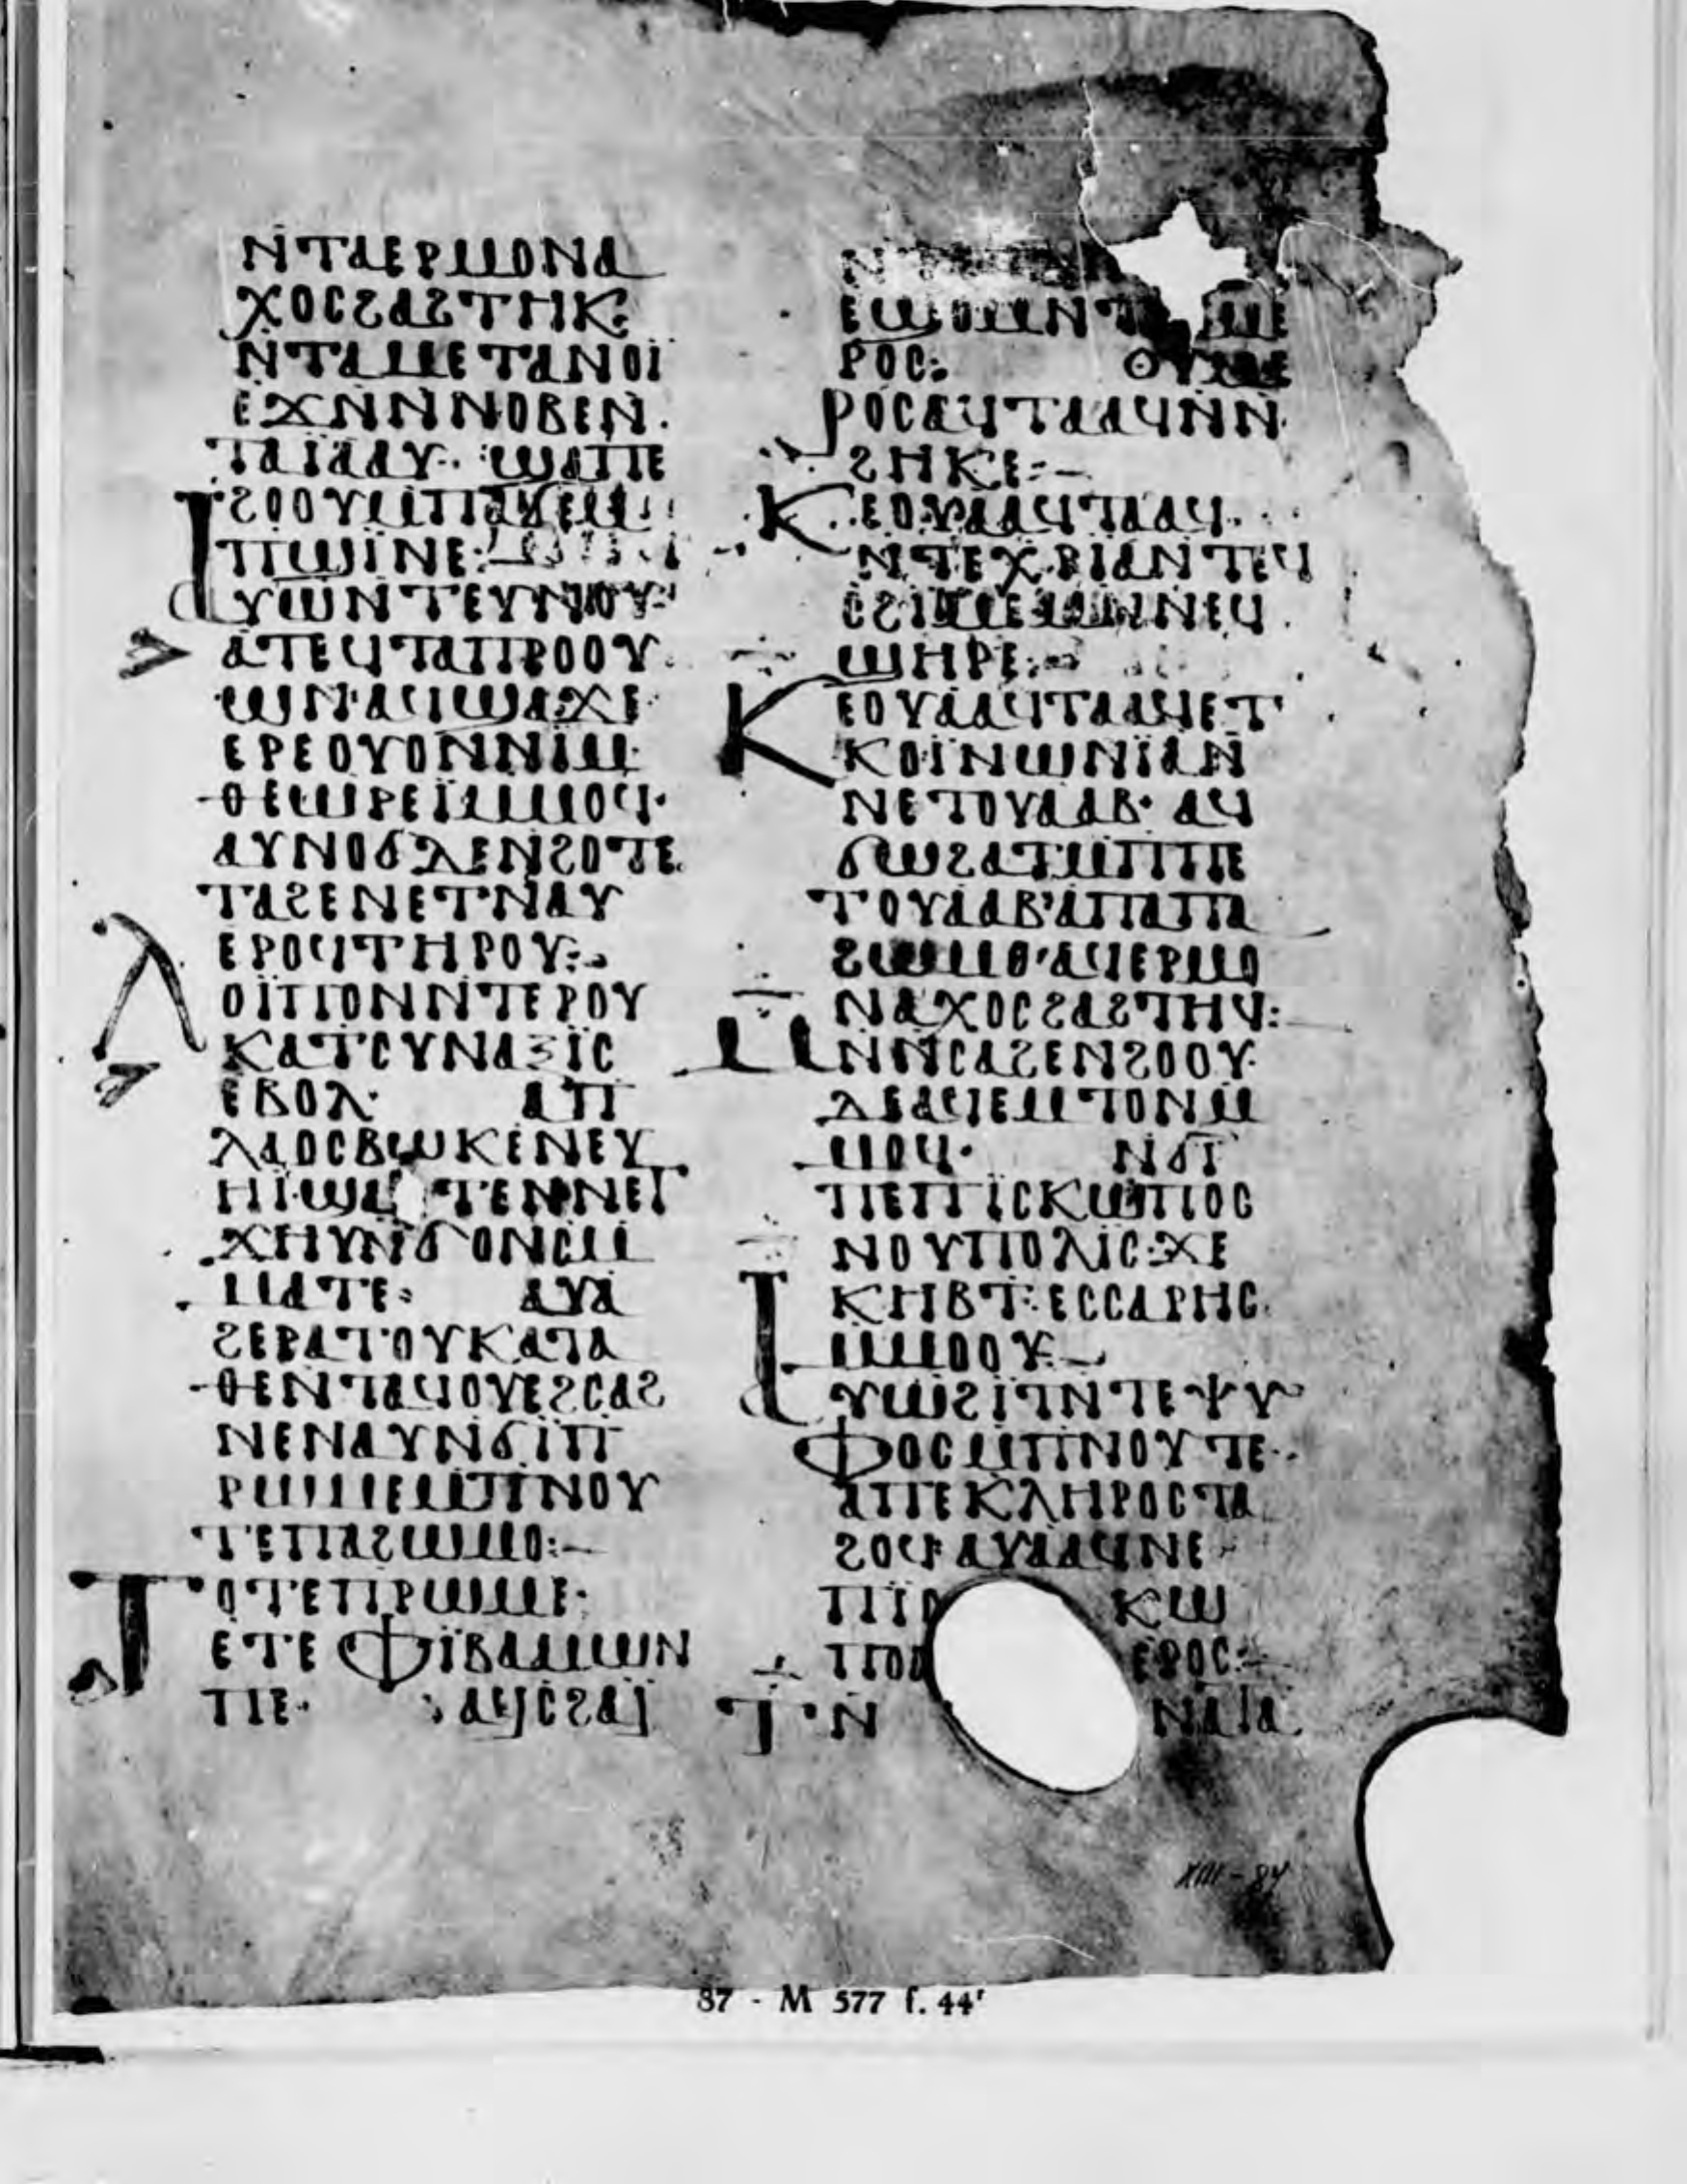 ⲚⲦⲀⲈⲢⲘⲞⲚⲀ
ⲬⲞⲤϨⲀϨⲦⲎⲔ:
ⲚⲦⲀⲘⲈⲦⲀⲚⲞⲒ
ⲈϪⲚⲚⲚⲞⲂⲈⲚ
ⲦⲀⲒⲀⲀⲨ· ϢⲀⲠⲈ
ϨⲞⲞⲨⲘⲠⲀϬⲘ
ⲠϢⲒⲚⲈ:
ⲀⲨⲰⲚⲦⲈⲨⲚⲞⲨ
ⲀⲦⲈϤⲦⲀⲠⲢⲞⲞⲨ
ⲰⲚ·ⲀϤϢⲀϪⲈ
ⲈⲢⲈⲞⲨⲞⲚⲚⲒⲘ
ⲐⲈⲰⲢⲈⲒⲘⲘⲞϤ·
ⲀⲨⲚⲞϬⲆⲈⲚϨⲞⲦⲈ
ⲦⲀϨⲈⲚⲈⲦⲚⲀⲨ
ⲈⲢⲞϤⲦⲎⲢⲞⲨ:
ⲖⲞⲒⲠⲞⲚⲚⲦⲈⲢⲞⲨ
ⲔⲀⲦⲤⲨⲚⲀⲜⲒⲤ
ⲈⲂⲞⲖ· ⲀⲠ
ⲖⲀⲞⲤⲂⲰⲔⲈⲚⲈⲨ
ⲎⲒ·ϢⲀⲦⲈⲚⲚⲈⲦ
ϪⲎⲨⲚϬⲞⲚⲤⲘ
ⲘⲀⲦⲈ: ⲀⲨⲀ
ϨⲈⲢⲀⲦⲞⲨⲔⲀⲦⲀ
ⲐⲈⲚⲦⲀϤⲞⲨⲈϨⲤⲀϨ
ⲚⲈⲚⲀⲨⲚϬⲒⲠ
ⲢⲰⲘⲈⲘⲠⲚⲞⲨ
ⲦⲈⲠⲀϨⲰⲘⲞ:
ⲦⲞⲦⲈⲠⲢⲰⲘⲈ·
ⲈⲦⲈⲪⲒⲂⲀⲘⲰⲚ
ⲠⲈ· ⲀϤⲤϨⲀⲒ
ⲈϢⲞⲘⲚⲦ ⲘⲈ
ⲢⲞⲤ: ⲞⲨⲘⲈ
ⲢⲞⲤⲀϤⲦⲀⲀϤⲚⲚ
ϨⲎⲔⲈ:
ⲔⲈⲞⲨⲀⲀϤⲦⲀⲀϤ
ⲚⲦⲈⲬⲢⲒⲀⲚⲦⲈϤ
ⲤϨⲒⲘⲈⲘⲚⲚⲈϤ
ϢⲎⲢⲈ:
ⲔⲈⲞⲨⲀⲀϤⲦⲀⲀϤⲈⲦ
ⲔⲞⲒⲚⲰⲚⲒⲀⲚ
ⲚⲈⲦⲞⲨⲀⲀⲂ· ⲀϤ
ϬⲰϨⲀⲦⲘⲠⲠⲈ
ⲦⲞⲨⲀⲀⲂ·ⲀⲠⲀⲠⲀ
ϨⲰⲘⲞ·ⲀϤⲈⲢⲘⲞ
ⲚⲀⲬⲞⲤϨⲀϨⲦⲎϤ:
ⲘⲚⲚⲤⲀϨⲈⲚϨⲞⲞⲨ
ⲆⲈⲀϤⲈⲘⲦⲞⲚⲘ
ⲘⲞϤ· ⲚϬⲒ
ⲠⲈⲠⲒⲤⲔⲰⲠⲞⲤ
ⲚⲞⲨⲠⲞⲖⲒⲤ·ϪⲈ
ⲔⲎⲂⲦ·ⲈⲤⲤⲀⲢⲎⲤ
ⲘⲘⲞⲞⲨ:
ⲀⲨⲰϨⲒⲦⲚⲦⲈⲮⲨ
ⲪⲞⲤⲘⲠⲚⲞⲨⲦⲈ·
ⲀⲠⲈⲔⲖⲎⲢⲞⲤⲦⲀ
ϨⲞϤ·ⲀⲨⲀⲀϤⲚⲈ
ⲠⲒ ⲔⲰ
ⲠⲞ ⲈⲢⲞⲤ:
ⲦⲚ ⲚⲀⲒⲀ
XIII - 84
87 - M 577 f. 44r